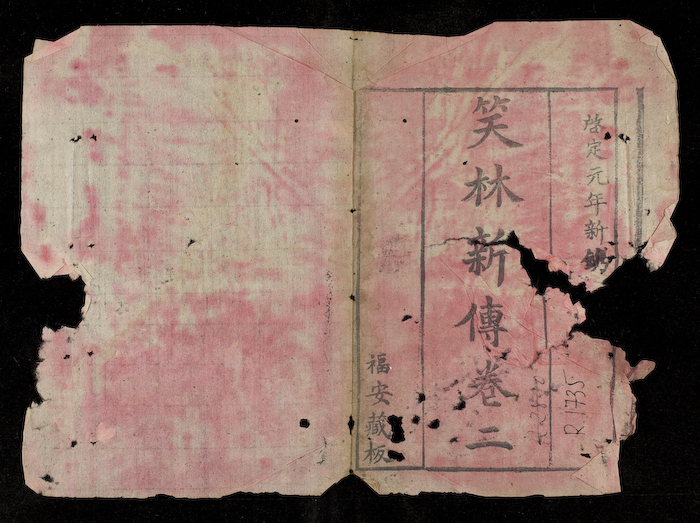 啓定元年新鐫
笑林新傳卷二
福安藏板
R 1735